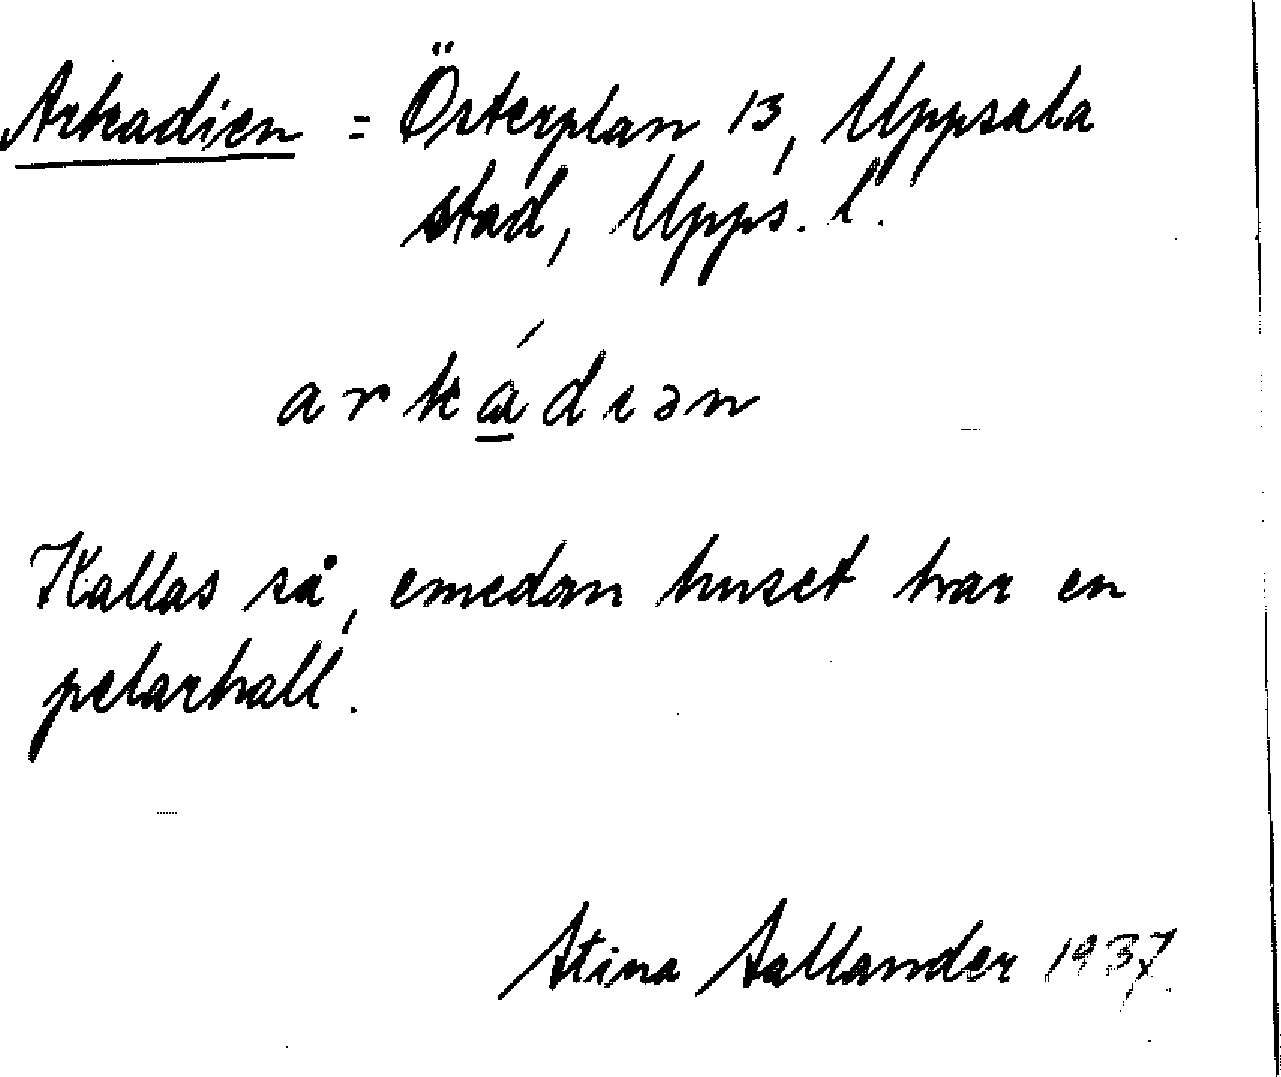 Arkadien = Österplan 13, Uppsala
stad, Upps. l.
arkádıən
Kallas så, emedan huset har en
pelarhall.
Stina Sallander 1937.